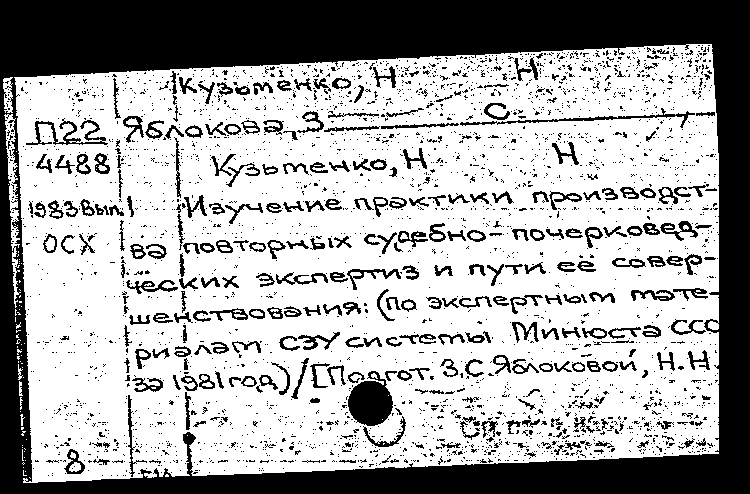 Кузьменко, Н Н
П22 Яблокова, З С.
4488 Кузьменко, Н Н
1983 Вып. 1 Изучение практики производст-
ОСХ ва повторных судебно-почерковед-
ческих экспертиз и пути её совер-
шенствования: (По экспертным мате-
риалам СЭУ системы Минюста ССС
за 1981 год)/[Подгот. З.С. Яблоковой, Н.Н.
8